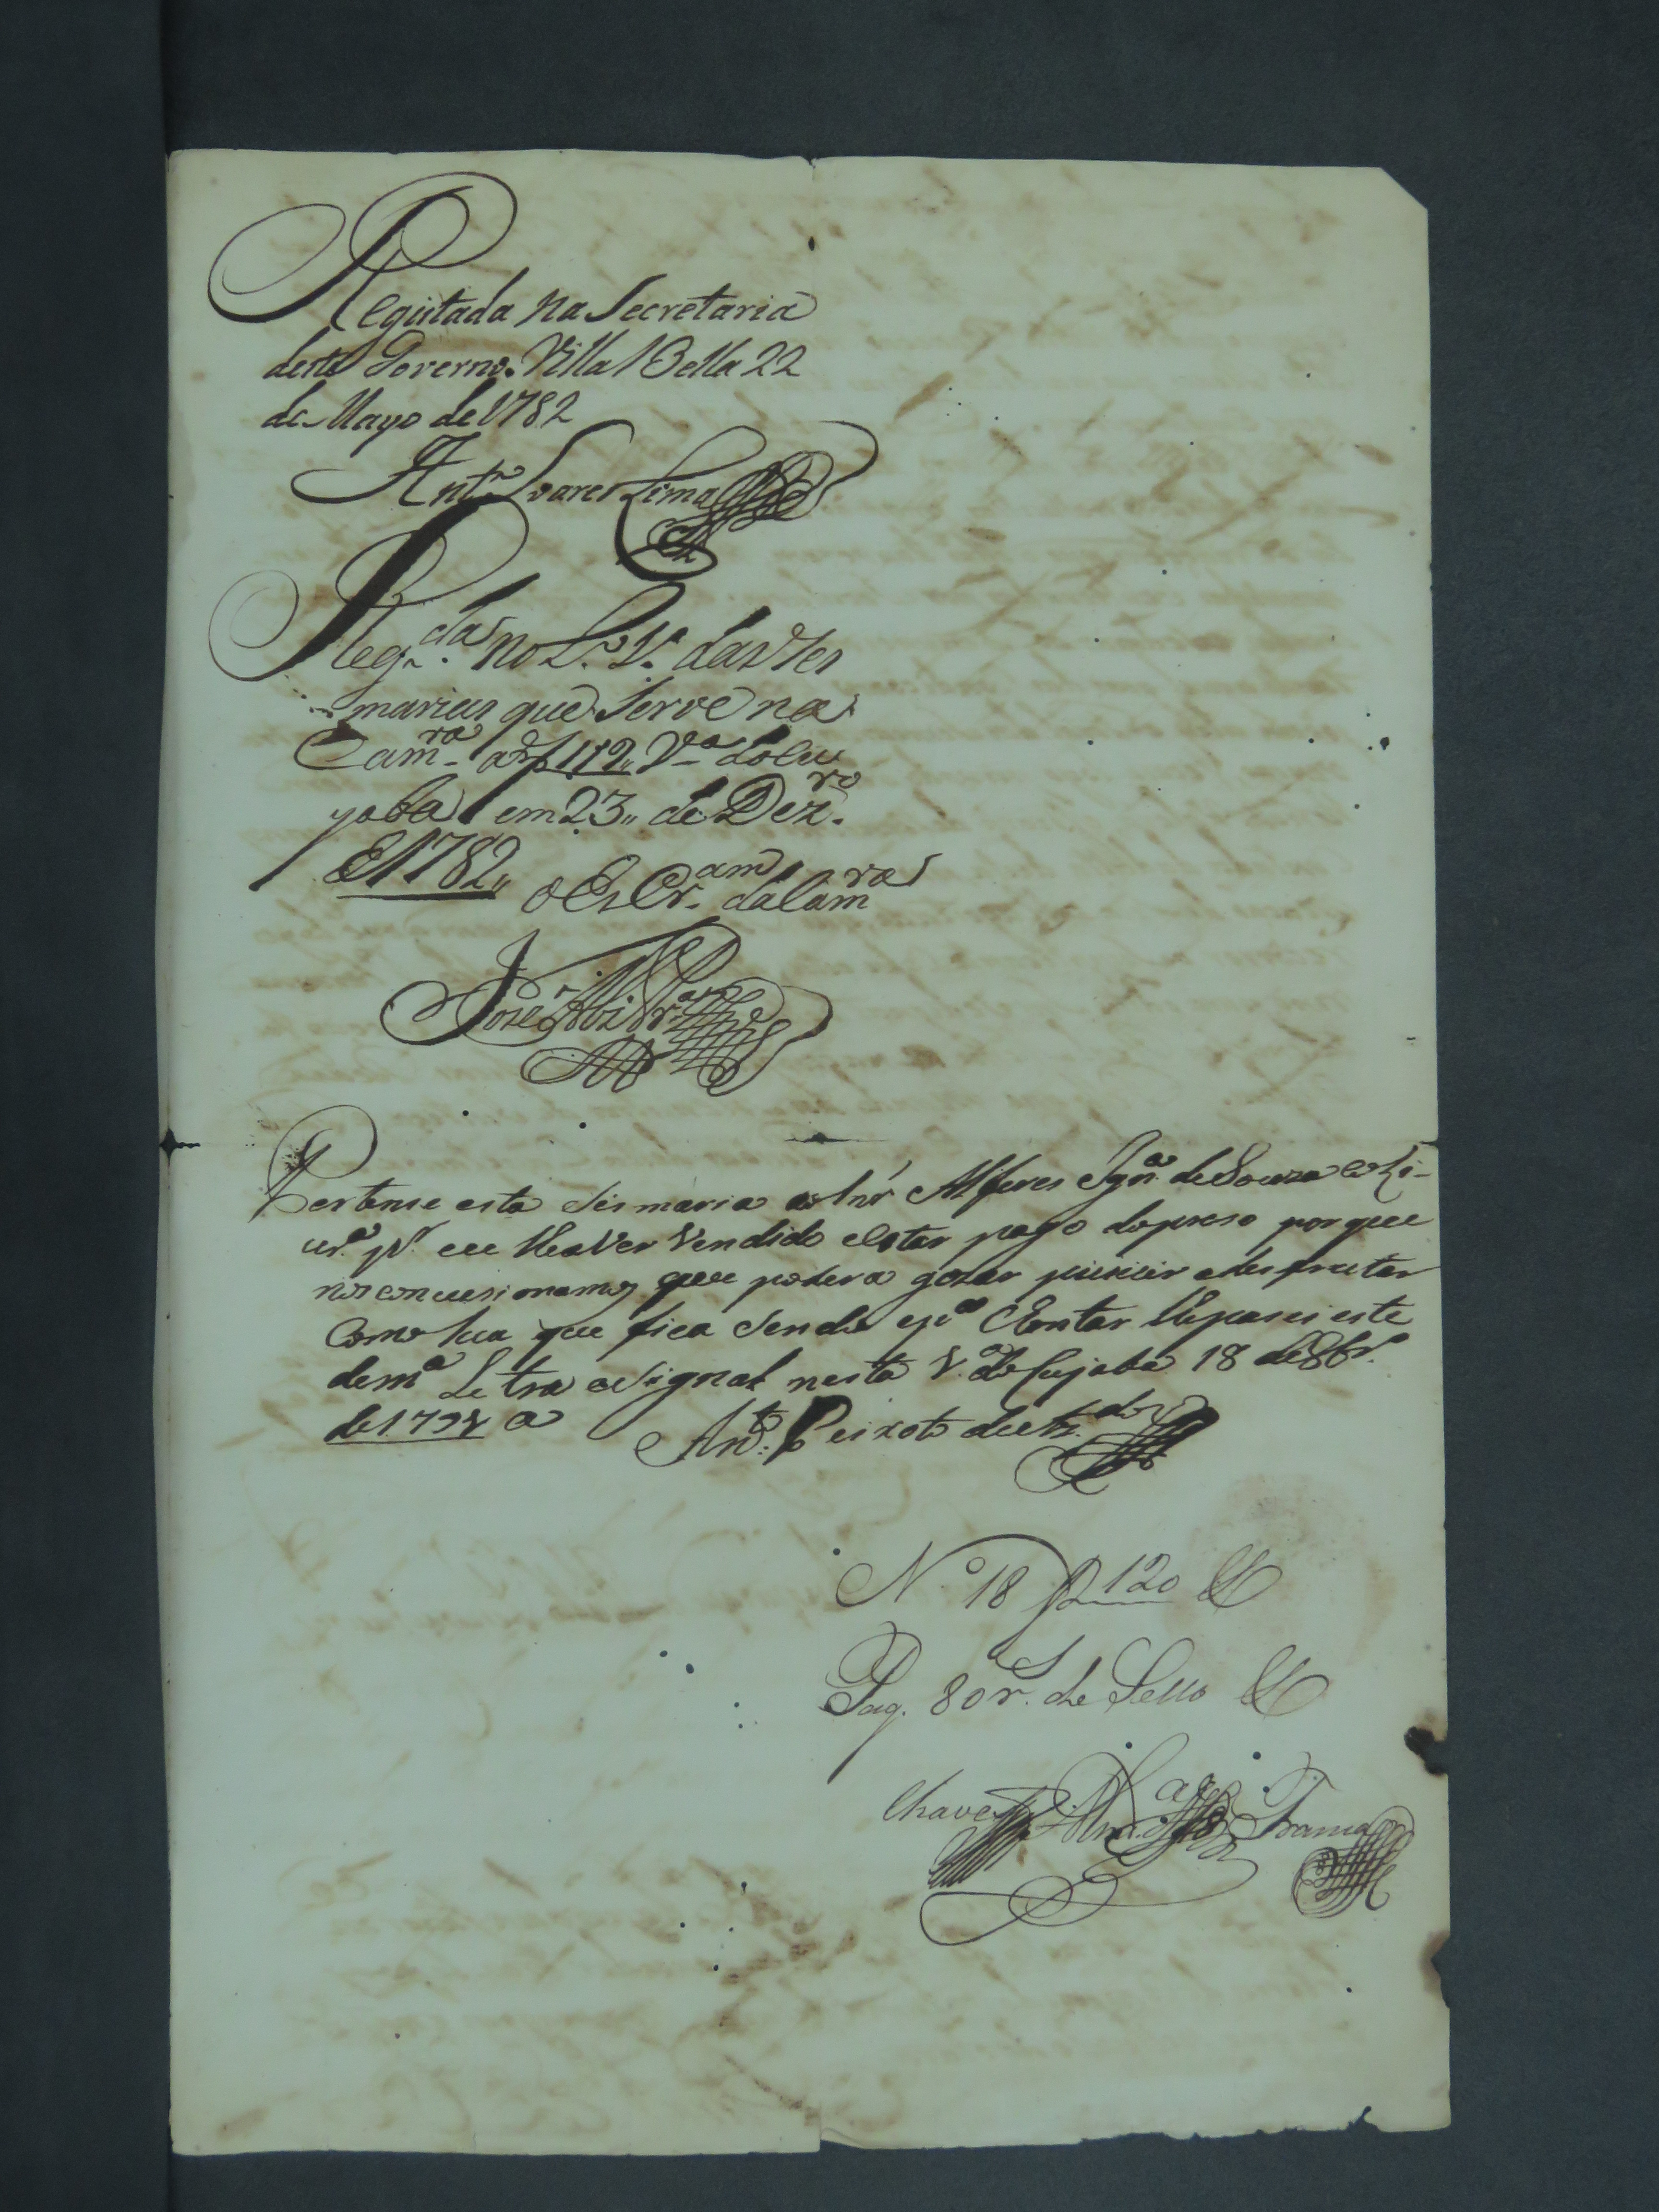 Registada na Secretaria
deste Governo. Villa Bella 22
de Mayo de 1782
Antº Soares Lima
Regda no Lº 1º das Ses
marias que Serve na
Camra a f 112 Va do Cu
yaba em 23 de Dezro
de 1782
o EsCram da Camra
José
Pertense esta Sesmaria ao Snr Alferes Ignº de Souza
pr eu lhe aVer Vendido e estar pago do preso por que
nos concusionamos que podera gozar e desfrutar
Como Sua que fica Sendo e pª Constar lhe pasei este
de mª Letra e Signal nesta Vª do Cujaba 18 de 8br
de 179
Antº Peixoto de
Nº 18 120
Pag. 80 r. de Sello
Chaves França